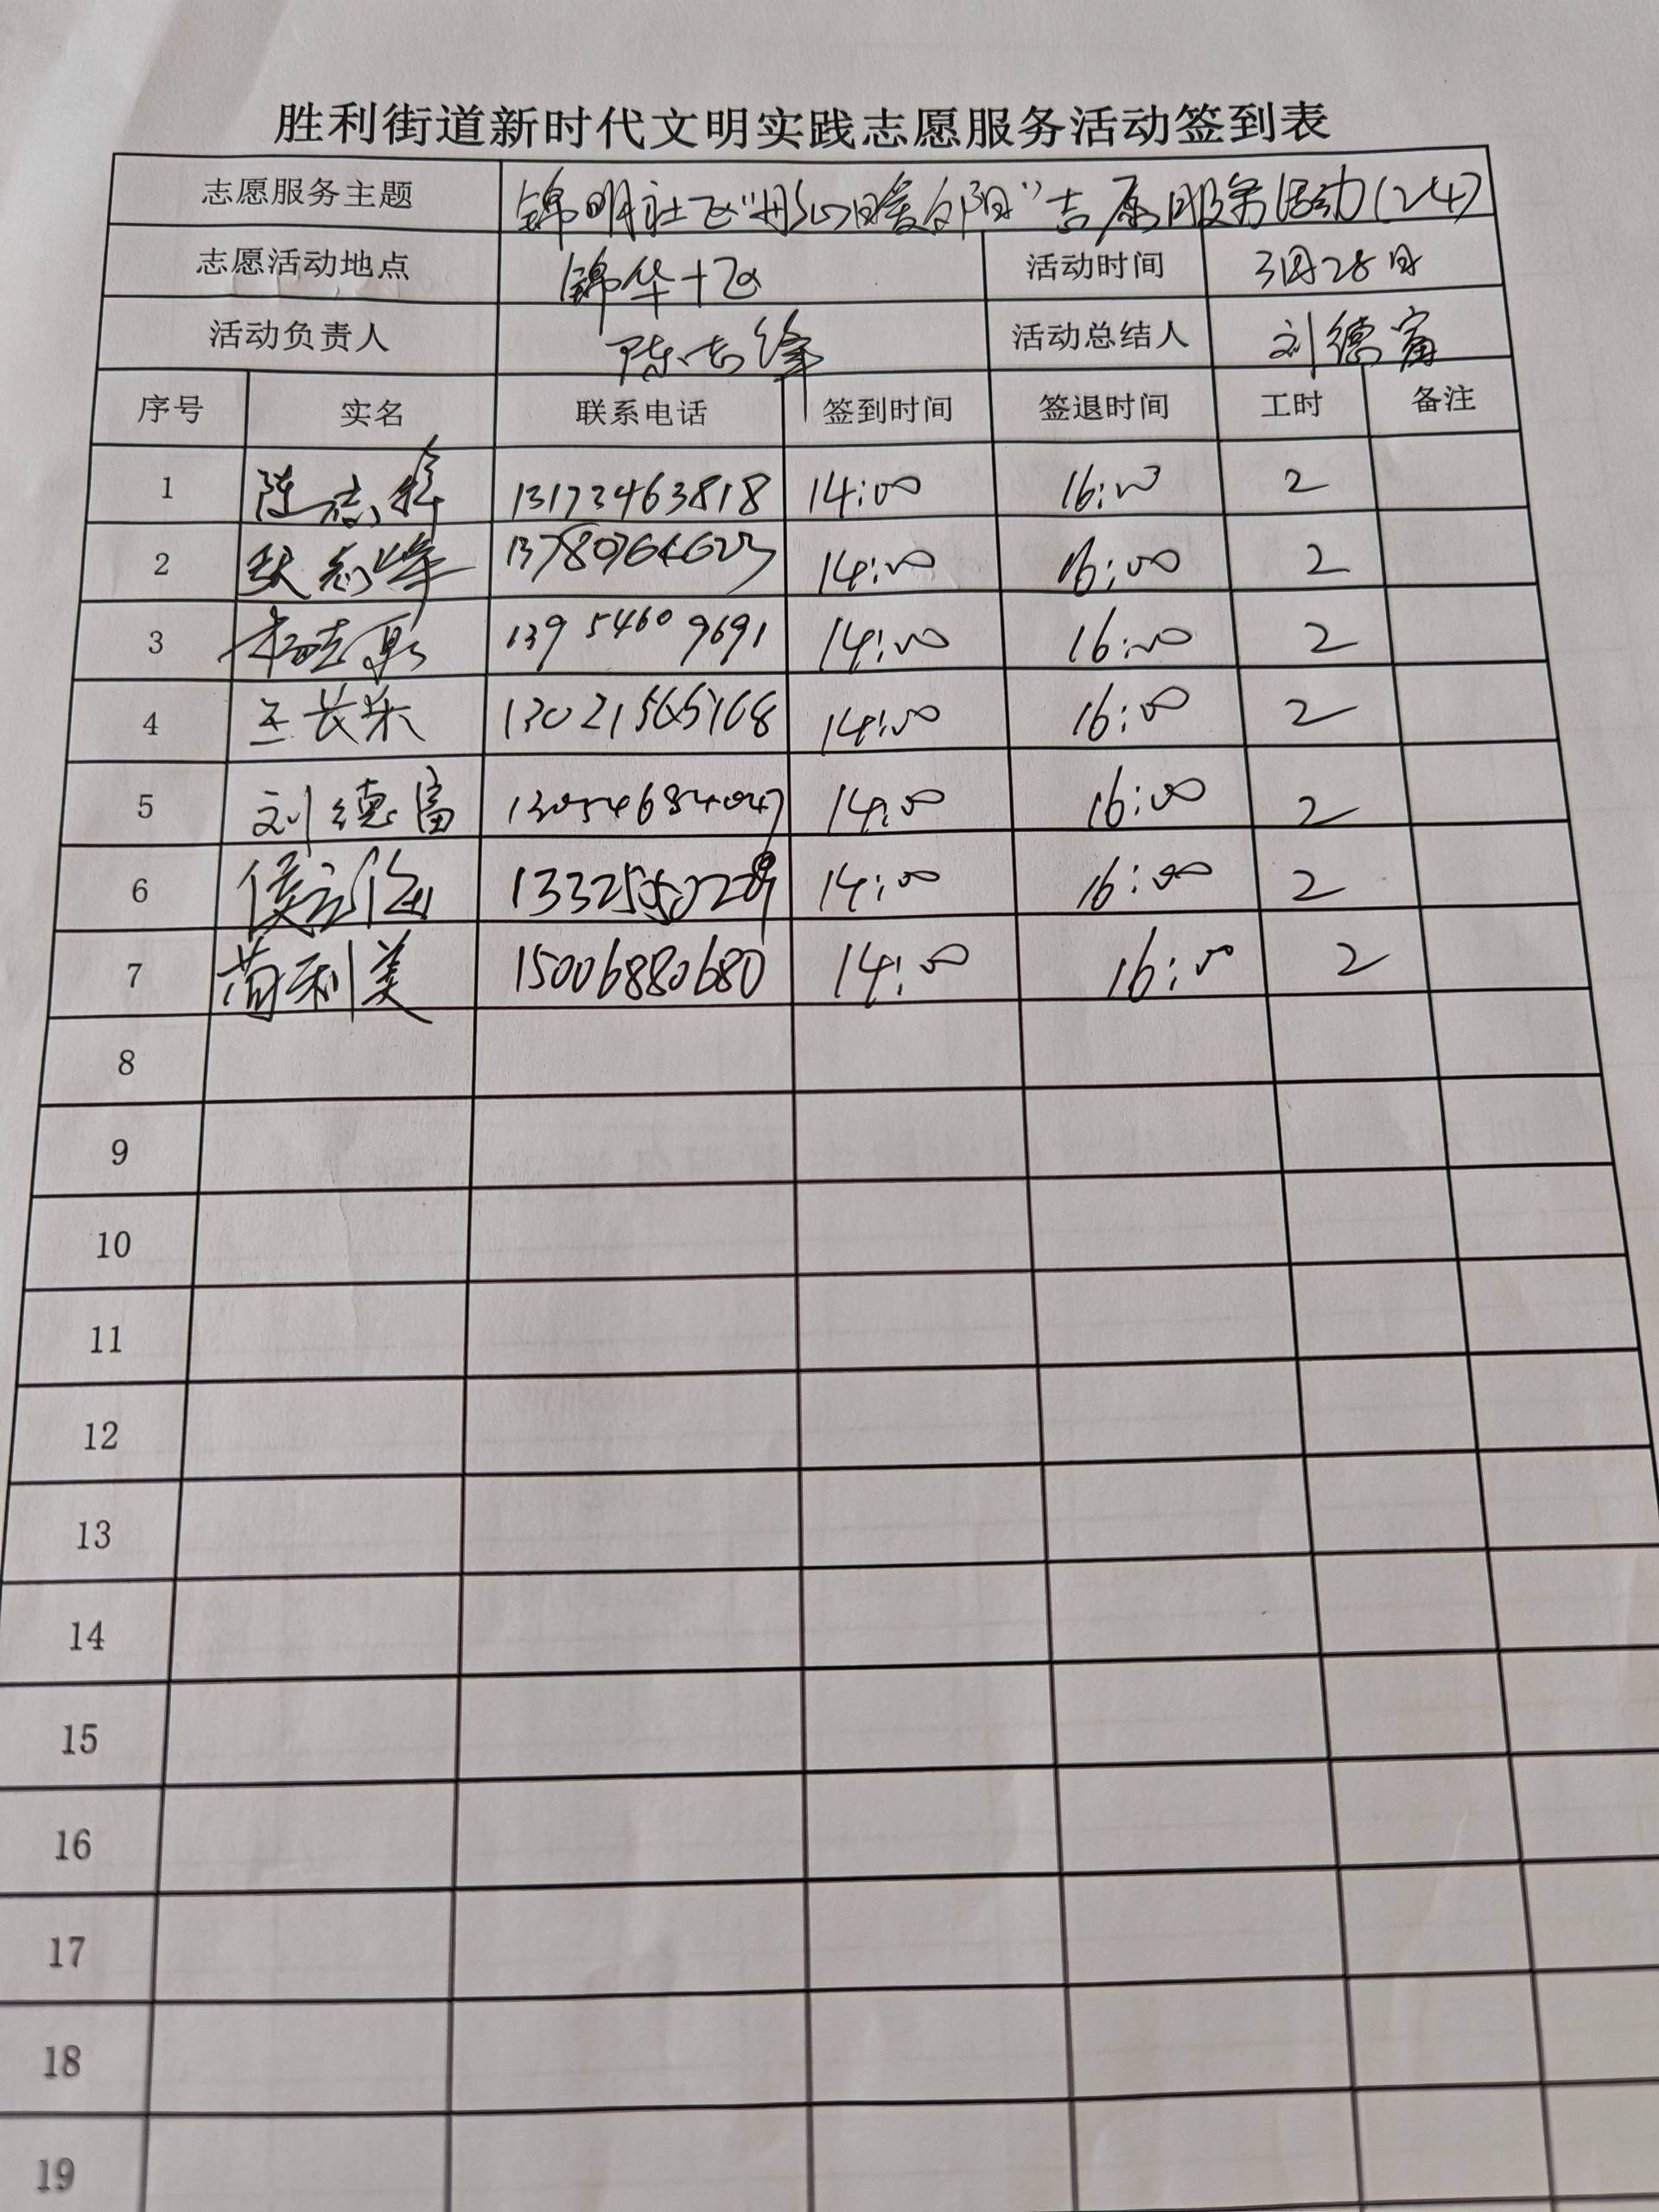 胜利街道新时代文明实践志愿服务活动签到表
志愿服务主题 锦明社区"丹心暖夕阳"志愿服务活动(24)
志愿活动地点 锦华十区 活动时间 3月28日
活动负责人 陈志锋 活动总结人 刘德富
序号 实名 联系电话 签到时间 签退时间 工时 备注
1 陈志锋 13173463818 14:00 16:00 2
2 志峰 14:00 16:00 2
3 13954609691 14:00 16:00 2
4 王长乐 13021565168 14:00 16:00 2
5 刘德富 13054684047 14:00 16:00 2
6 侯 14:00 16:00 2
7 苗利美 15006880680 14:00 16:00 2
8
9
10
11
12
13
14
15
16
17
18
19